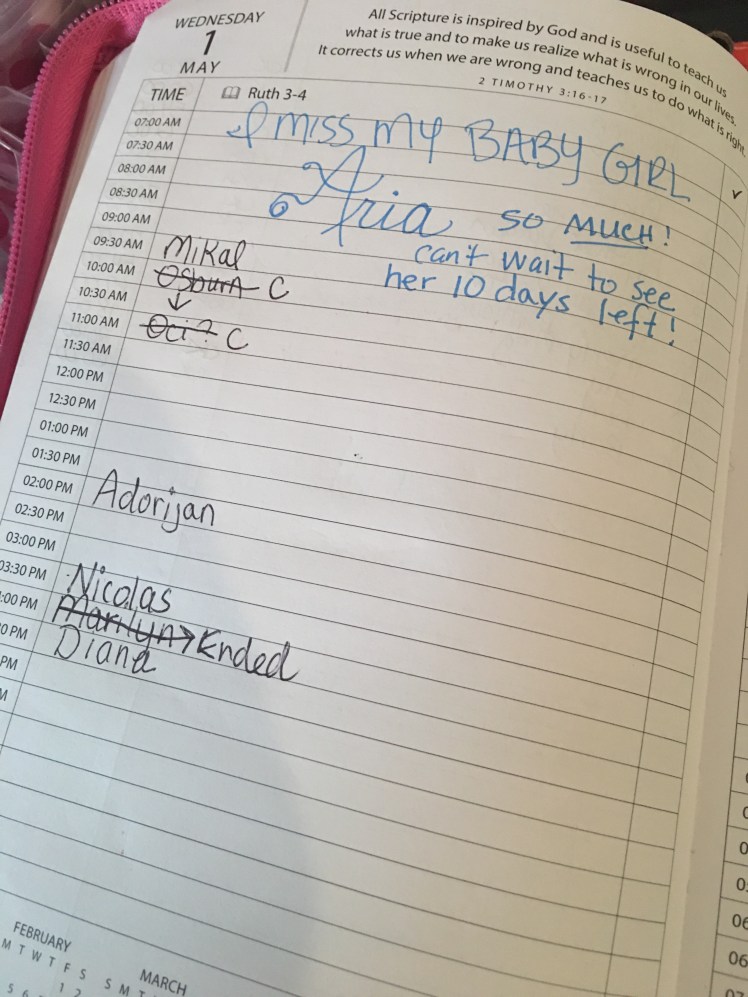 WEDNESDAY
1
MAY
All Scripture is inspired by God and is useful to teach us
what is true and to make us realize what is wrong in our lives.
It corrects us when we are wrong and teaches us to do what is right.
2 TIMOTHY 3:16-17
TIME Ruth 3-4
07:00 AM I MISS MY BABY GIRL
07:30 AM
08:00 AM Aria SO MUCH!
08:30 AM
09:00 AM can't wait to see
her 10 days left!
09:30 AM Mikal
10:00 AM Osburn C
10:30 AM
11:00 AM Oci? C
11:30 AM
12:00 PM
12:30 PM
01:00 PM
01:30 PM
02:00 PM Adorijan
02:30 PM
03:00 PM
03:30 PM Nicolas
:00 PM Marilyn → Ended
0 PM Diana
PM
M
FEBRUARY
M T W T F S
1 2
MARCH
S M T
5 6
0
0
0
06
06
07